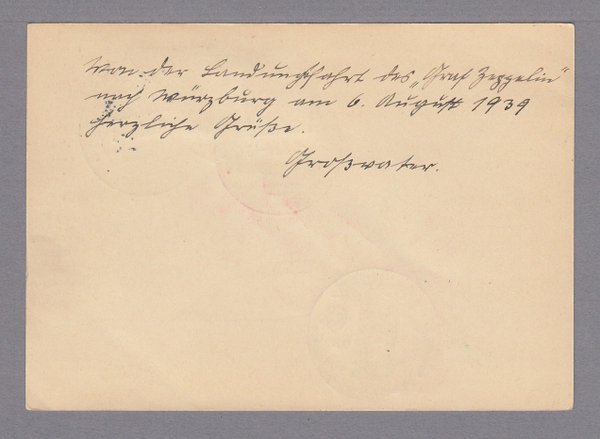 Von der Landungsfahrt des „Graf Zeppelin“
nach Würzburg am 6. August 1939
herzliche Grüße.
Großvater.